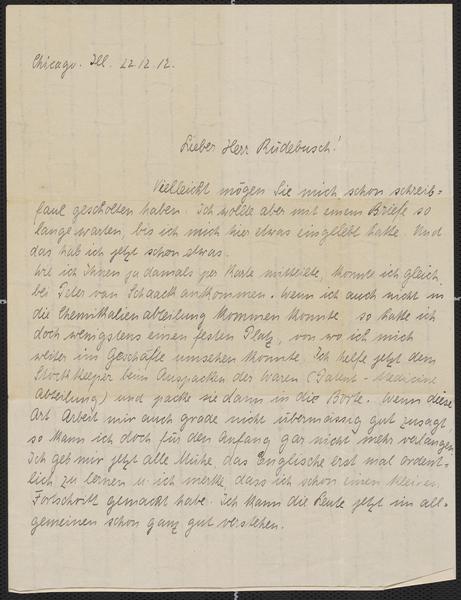 Chicago. Ill. 22 12 12.
Lieber Herr Rüdebusch!
Vielleicht mögen Sie mich schon schreib=
faul gescholten haben. Ich wollte aber mit einem Briefe so
lange warten, bis ich mich hier etwas eingelebt hatte. Und
das hab ich jetzt schon etwas.
Wie ich Ihnen ja damals per Karte mitteilte, konnte ich gleich
bei Peter van Schaack ankommen. Wenn ich auch nicht in
die Chemikalienabteilung kommen konnte so hatte ich
doch wenigstens einen festen Platz, von wo ich mich
weiter im Geschäfte umsehen konnte. Ich helfe jetzt dem
Stock Keeper beim Auspacken der Waren (Patent-Medicine
Abteilung) und packe sie dann in die Börte. Wenn diese
Art Arbeit mir auch grade nicht übermässig gut zusagt,
so kann ich doch für den Anfang gar nicht mehr verlangen
Ich geb mir jetzt alle Mühe, das Englische erst mal ordent-
lich zu lernen u. ich merke, dass ich schon einen kleinen
Fortschritt gemacht habe. Ich kann die Leute jetzt im all-
gemeinen schon ganz gut verstehen.